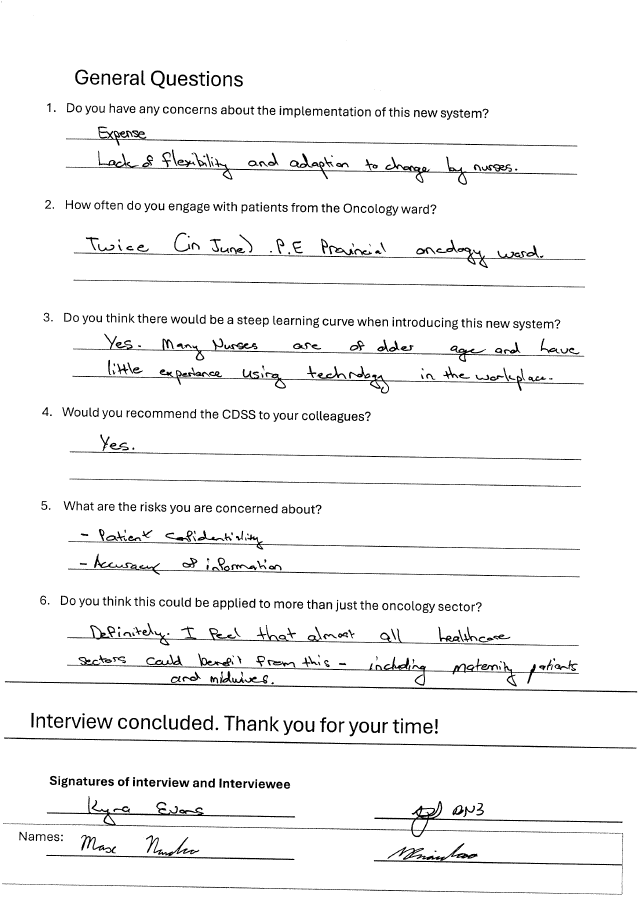 General Questions
1. Do you have any concerns about the implementation of this new system?
Expense
Lack of flexibility and adaption to change by nurses.
2. How often do you engage with patients from the Oncology ward?
Twice (in June) . P.E Provincial oncology ward.
3. Do you think there would be a steep learning curve when introducing this new system?
Yes. Many Nurses are of older age and have
little experience using technology in the workplace.
4. Would you recommend the CDSS to your colleagues?
Yes.
5. What are the risks you are concerned about?
- Patient confidentiality
- Accuracy of information
6. Do you think this could be applied to more than just the oncology sector?
Definitely. I feel that almost all healthcare
sectors could benefit from this - including maternity patients
and midwives.
Interview concluded. Thank you for your time!
Signatures of interview and Interviewee
Kyra Evans
Names: